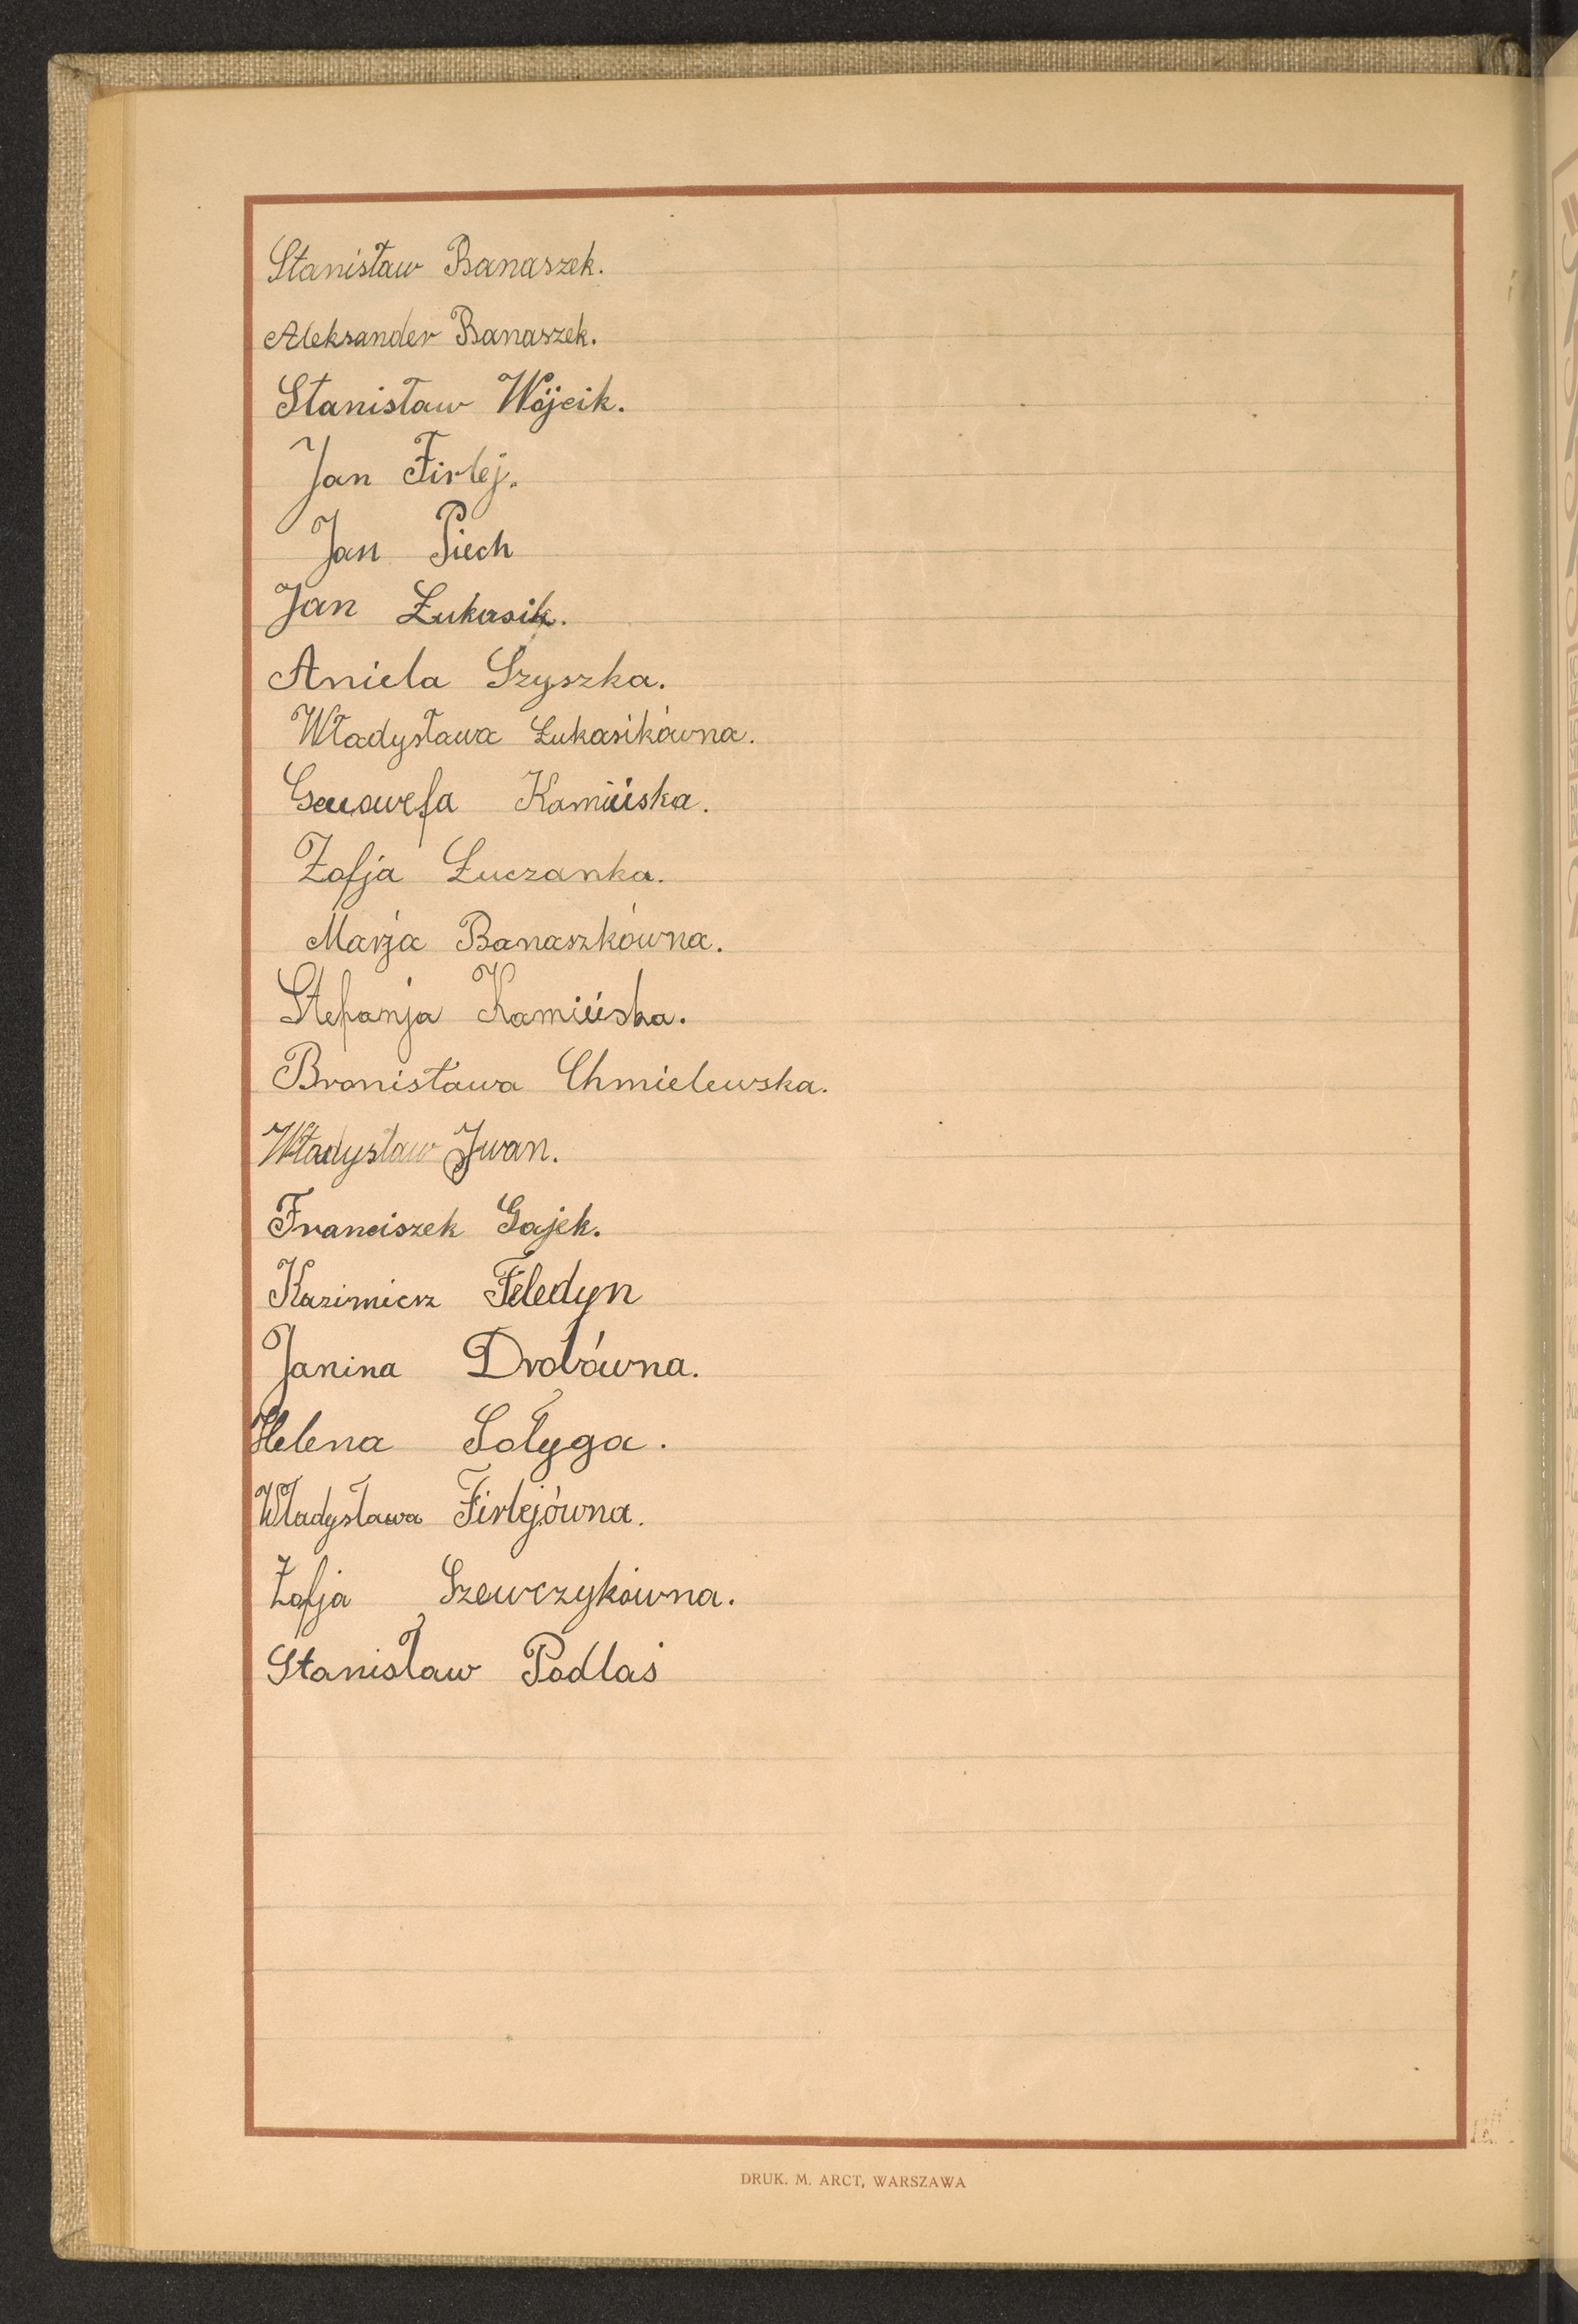 Stanisław Banaszek.
Aleksander Banaszek.
Stanisław Wójcik.
Jan Firlej.
Jan Piech
Jan Łukasik.
Aniela Szyszka.
Władysława Łukasikówna.
Genowefa Kamińska.
Zofja Łuczanka.
Marja Banaszkówna.
Stefanja Kamińska.
Bronisława Chmielewska.
Władysław Iwan.
Franciszek Gajek.
Kazimierz Feledyn
Janina Drobówna.
Helena Sołyga.
Władysława Firlejówna.
Zofja Szewczykówna.
Stanisław Podlaś
DRUK. M. ARCT, WARSZAWA